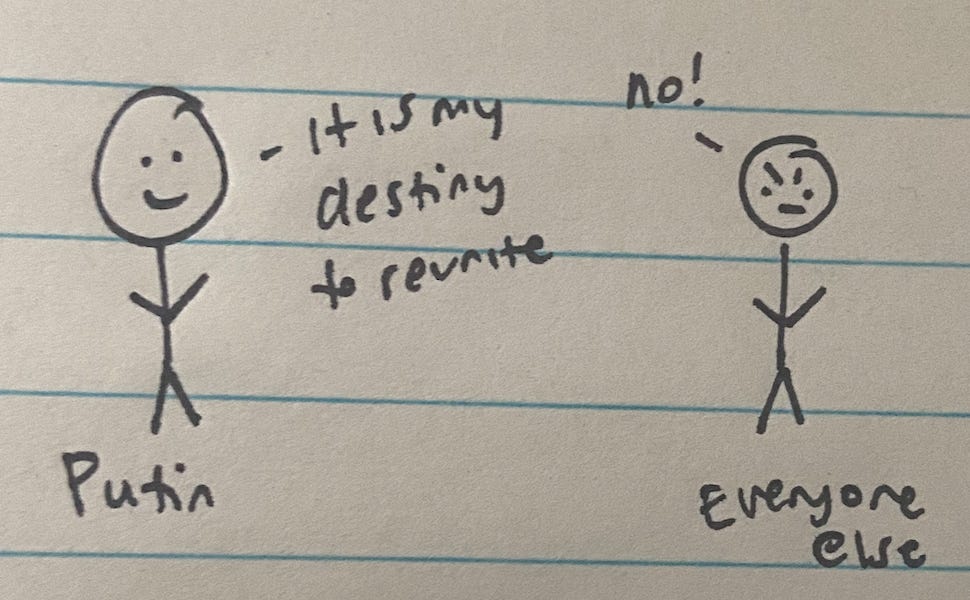 it is my
destiny
to reunite
no!
Putin
Everyone
else